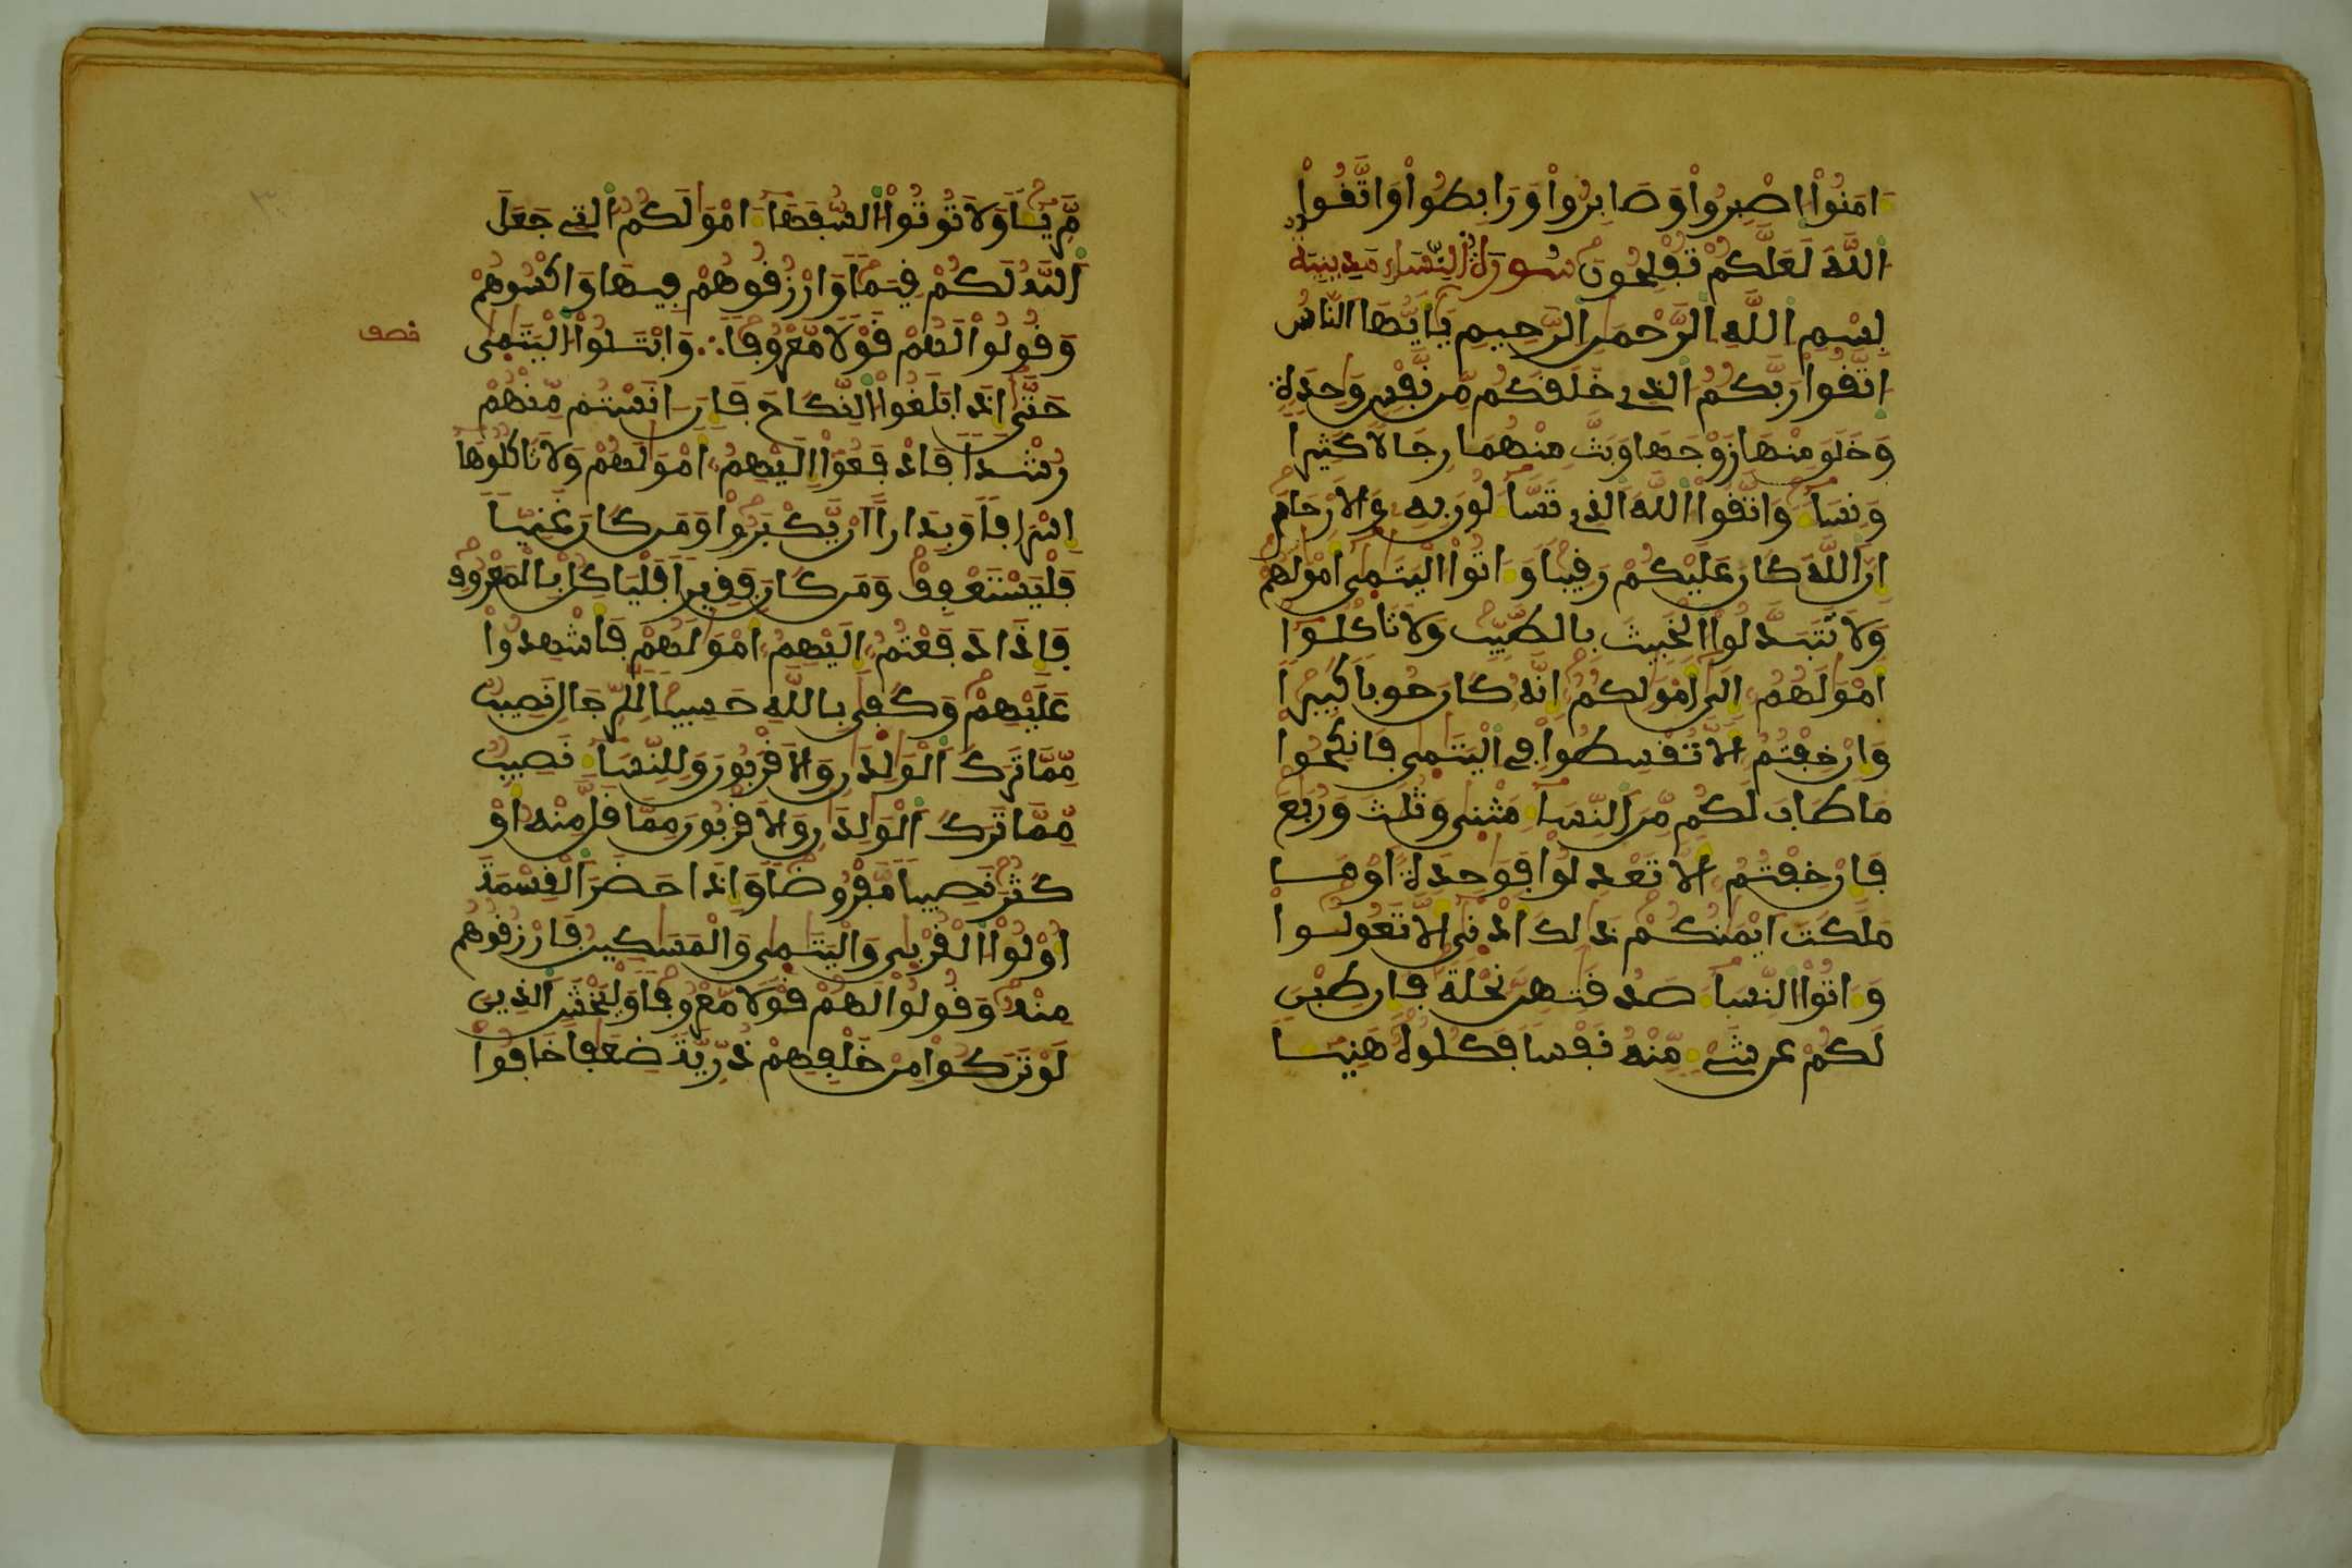 ءَامَنُواْ اصْبِرُواْ وَصَابِرُواْ وَرَابِطُواْ وَاتَّقُواْ
اللَّهَ لَعَلَّكُمْ تُفْلِحُونَ سُورَةُ النِّسَاءِ مَدِينِيَّة
بِسْمِ اللَّهِ الرَّحْمَنِ الرَّحِيمِ يَا أَيُّهَا النَّاسُ
اتَّقُواْ رَبَّكُمُ الَّذِي خَلَقَكُم مِّن نَّفْسٍ وَاحِدَةٍ
وَخَلَقَ مِنْهَا زَوْجَهَا وَبَثَّ مِنْهُمَا رِجَالًا كَثِيرًا
وَنِسَاءً وَاتَّقُواْ اللَّهَ الَّذِي تَسَّاءَلُونَ بِهِ وَالْأَرْحَامَ
إِنَّ اللَّهَ كَانَ عَلَيْكُمْ رَقِيبًا وَءَاتُواْ الْيَتَامَى أَمْوَالَهُمْ
وَلَا تَتَبَدَّلُواْ الْخَبِيثَ بِالطَّيِّبِ وَلَا تَأْكُلُواْ
أَمْوَالَهُمُ إِلَى أَمْوَالِكُمُ إِنَّهُ كَانَ حُوبًا كَبِيرًا
وَإِنْ خِفْتُمُ أَلَّا تُقْسِطُواْ فِي الْيَتَامَى فَانكِحُواْ
مَا طَابَ لَكُم مِّنَ النِّسَاءِ مَثْنَى وَثُلَثَ وَرُبَعَ
فَإِنْ خِفْتُمُ أَلَّا تَعْدِلُواْ فَوَاحِدَةً أَوْ مَا
مَلَكَتَ اَيْمَنُكُمْ ذَالِكَ أَدْنَى أَلَّا تَعُولُواْ
وَءَاتُواْ النِّسَاءَ صَدُقَتِهِنَّ نِحْلَةً فَإِن طِبْنَ
لَكُمْ عَن شَيْءٍ مِّنْهُ نَفْسًا فَكُلُوهُ هَنِيئًا
مَّرِيئًا وَلَا تُوتُواْ السُّفَهَاءَ امْوَالَكُمُ الَّتِي جَعَلَ
اللَّهُ لَكُمْ قِيَمًا وَارْزُقُوهُمْ فِيهَا وَاكْسُوهُمْ
وَقُولُواْ لَهُمْ قَوْلًا مَّعْرُوفًا ∴ وَابْتَلُواْ الْيَتَامَى
نصف
حَتَّى إِذَا بَلَغُواْ النِّكَاحَ فَإِنَ انَسْتُم مِّنْهُمْ
رُشْدًا فَادْفَعُواْ إِلَيْهِمُ أَمْوَالَهُمْ وَلَا تَاكُلُوهَا
إِسْرَافًا وَبِدَارًا أَنْ يَّكْبَرُواْ وَمَن كَانَ غَنِيًّا
فَلْيَسْتَعْفِفْ وَمَن كَانَ فَقِيرًا فَلْيَاكُلْ بِالْمَعْرُوفِ
فَإِذَا دَفَعْتُمُ إِلَيْهِمُ أَمْوَالَهُمْ فَأَشْهِدُواْ
عَلَيْهِمْ وَكَفَى بِاللَّهِ حَسِيبًا لِّلرِّجَالِ نَصِيبٌ
مِّمَّا تَرَكَ الْوَالِدَانِ وَالْأَقْرَبُونَ وَلِلنِّسَاءِ نَصِيبٌ
مِّمَّا تَرَكَ الْوَالِدَانِ وَالْأَقْرَبُونَ مِمَّا قَلَّ مِنْهُ أَوْ
كَثُرَ نَصِيبًا مَّفْرُوضًا وَإِذَا حَضَرَ الْقِسْمَةَ
أُوْلُواْ الْقُرْبَى وَالْيَتَامَى وَالْمَسَاكِينُ فَارْزُقُوهُم
مِّنْهُ وَقُولُواْ لَهُمْ قَوْلًا مَّعْرُوفًا وَلْيَخْشَ الَّذِينَ
لَوْ تَرَكُواْ مِنْ خَلْفِهِمْ ذُرِّيَّةً ضِعَافًا خَافُواْ